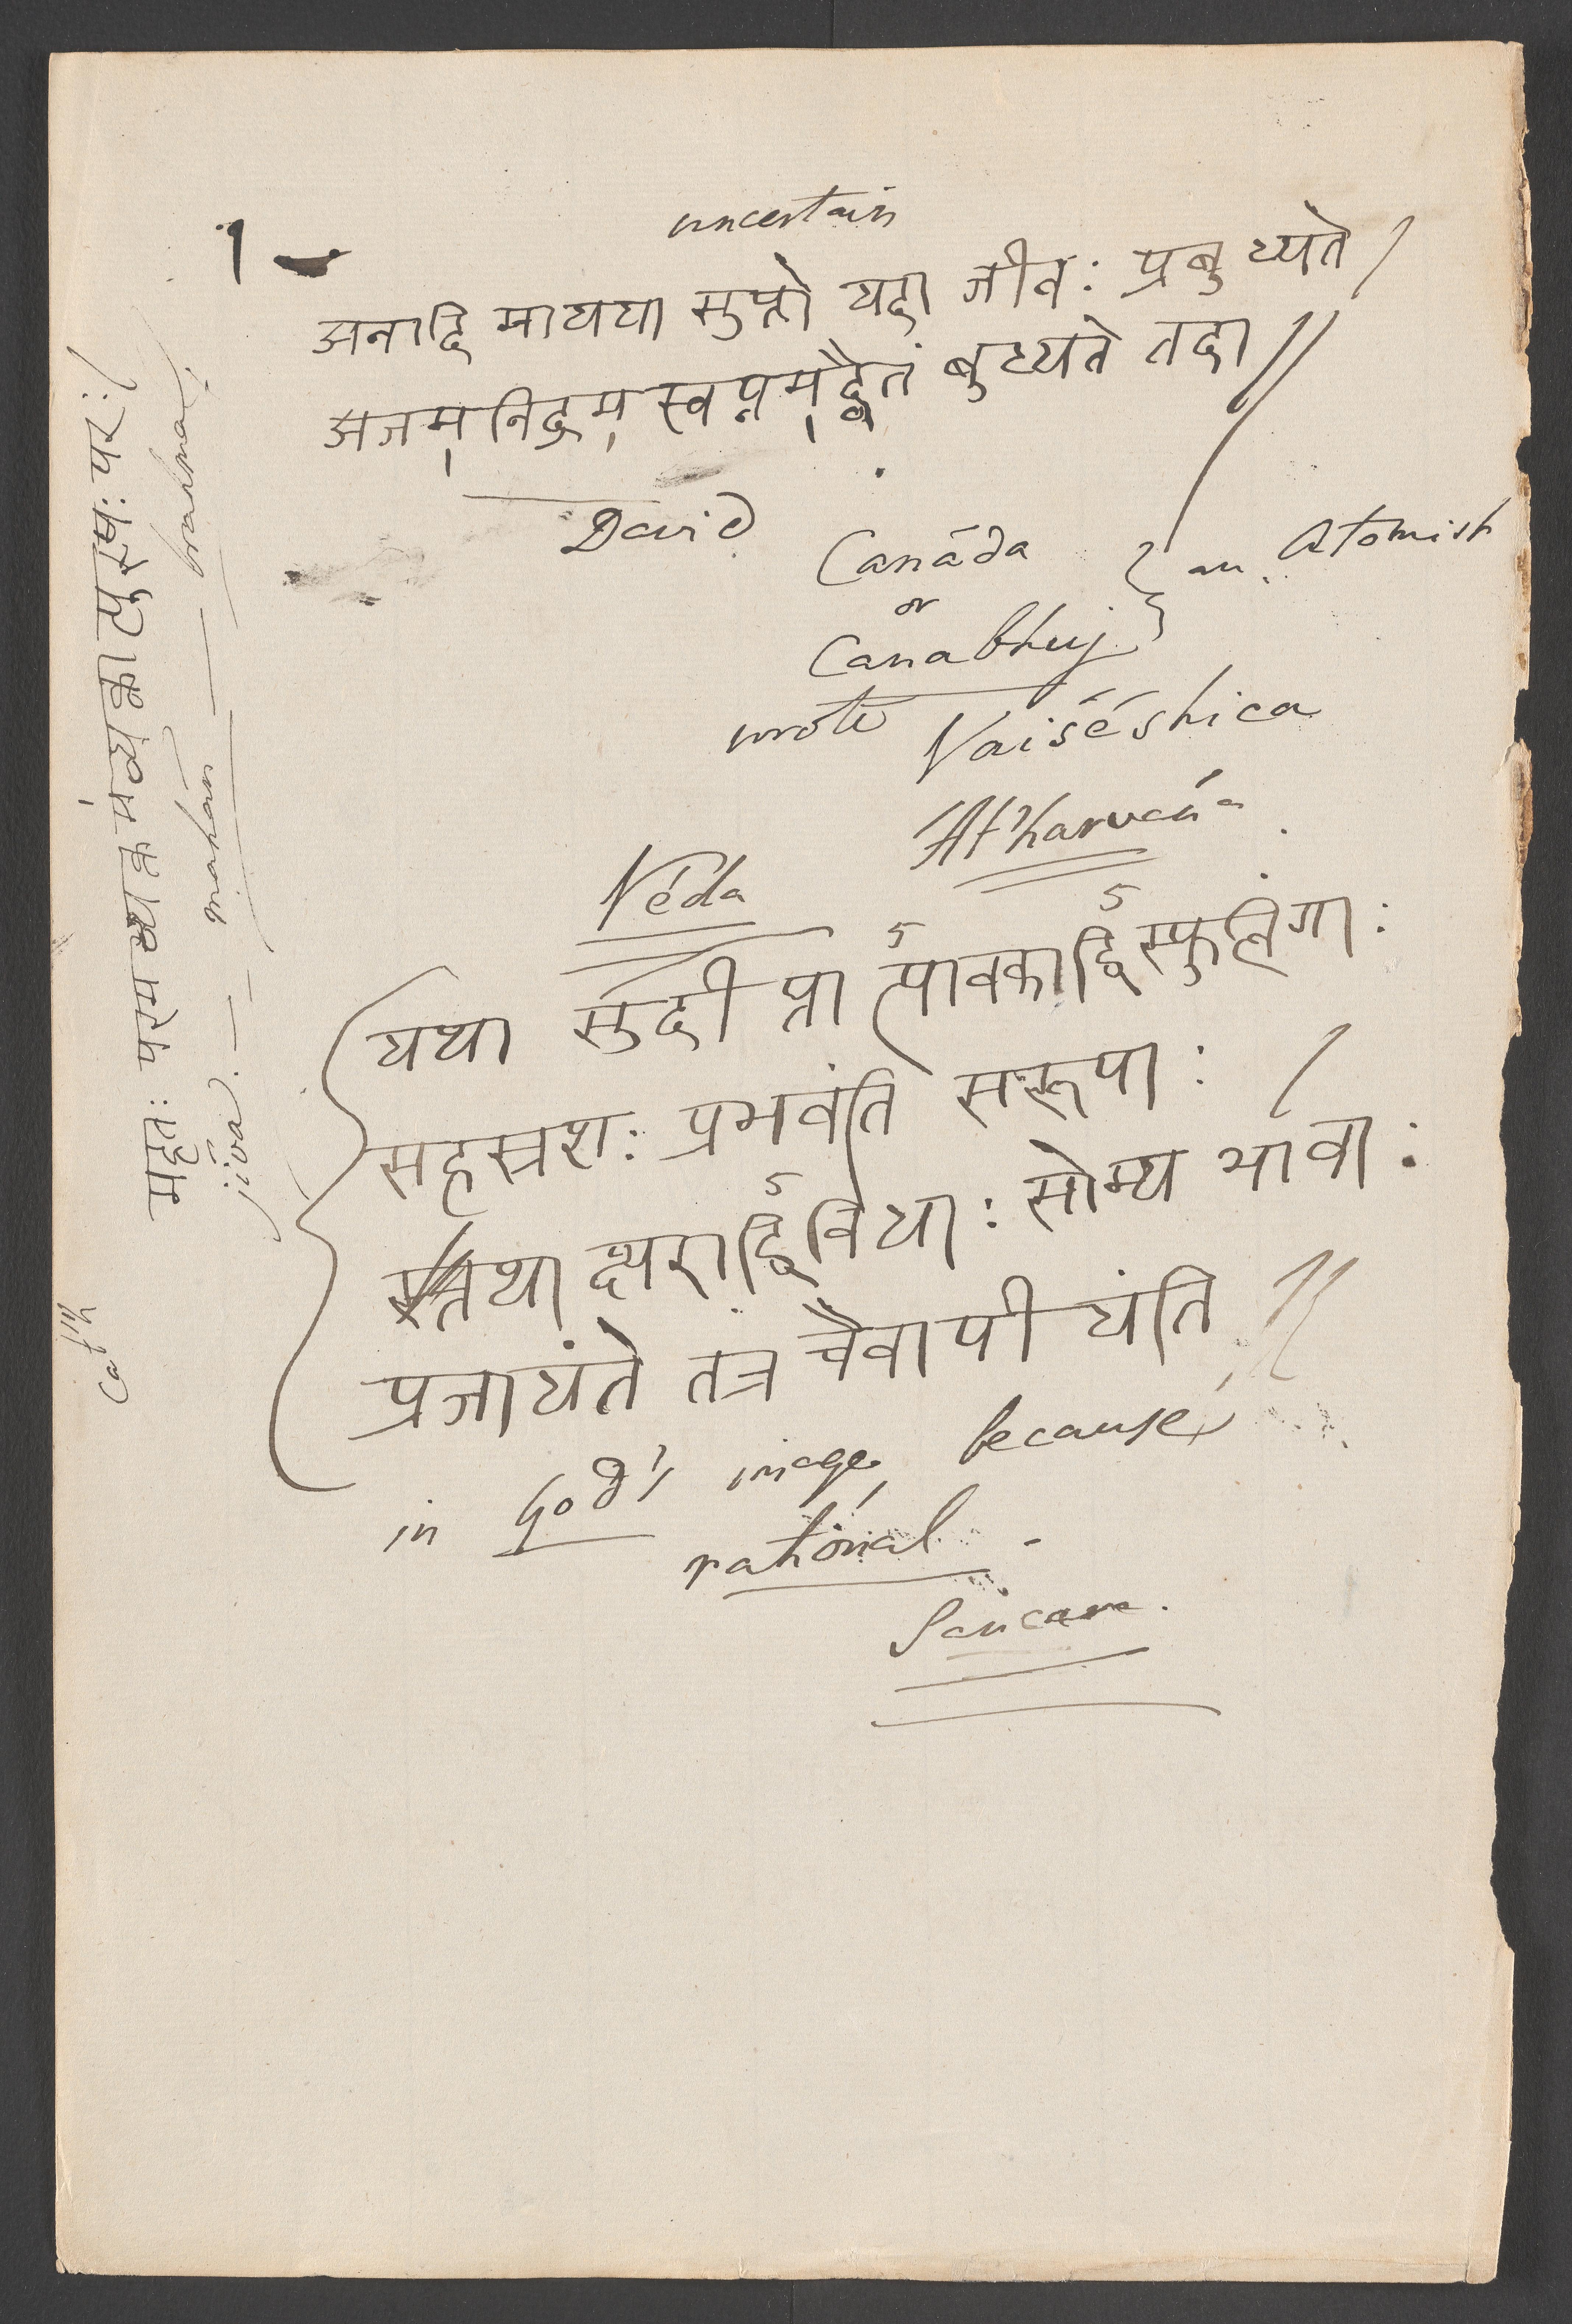 1
uncertain
अनादि मायया सुप्तो यदा जीवः प्रबुध्यते ।
अजम् निद्रम् स्वप्नम् द्वैतं बुध्यते तदा ॥
David
Canáda
or
Canabhuj
} an Atomist
wrote Vaiśéshica
At'harvańa
Véda
यथा सुदीप्ता त्पावकाद्विस्फुलिंगाः
सहस्रशः प्रभवंति सरूपाः ।
तथा क्षराद्विविधाः सोम्य भावाः
प्रजायंते तत्र चैवापी यंति ॥
in God's image, because
rational.
Sancara.
महतः परम व्यक्त मंव्यक्ता त्पुरुषः परः ।
jíva — mahán — brahma
Cat'h